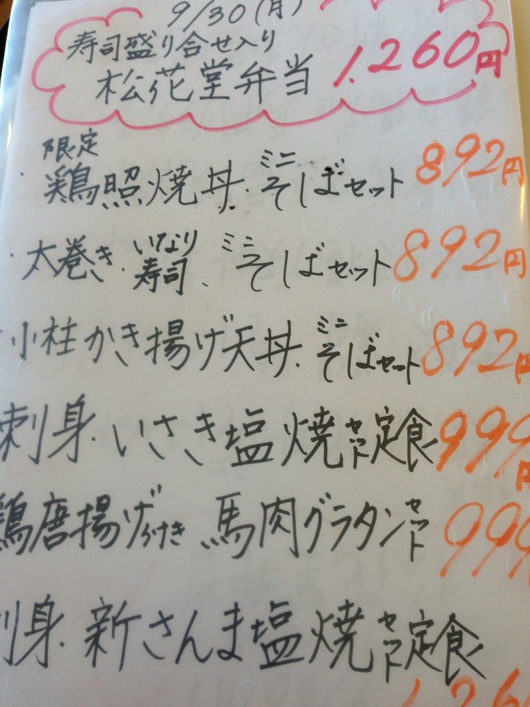 9/30(月)
寿司盛り合せ入り
松花堂弁当 1.260円
限定
・鶏照焼丼.ミニそばセット 892円
・太巻き.いなり寿司、ミニそばセット 892円
小柱かき揚げ天丼.ミニそばセット 892円
刺身.いさき塩焼セット定食 999円
鶏唐揚げ付き 馬肉グラタンセット 999
刺身.新さんま塩焼セット定食
1.26